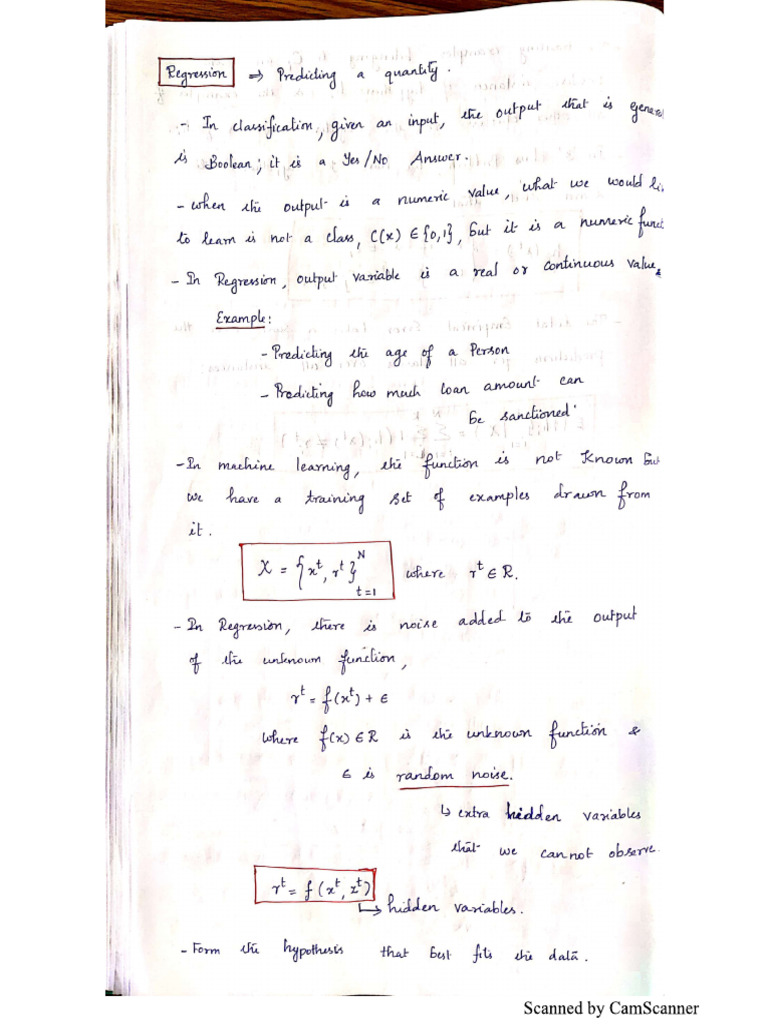 Regression ⇒ Predicting a quantity.
- In classification, given an input, the output that is gene
is Boolean; it is a Yes/No Answer.
- when the output is a numeric value, what we would li
to learn is not a class, C(x) ∈ {0,1}, but it is a numeric funct
- In Regression, output variable is a real or continuous value.
Example:
- Predicting the age of a Person
- Predicting how much loan amount can
be sanctioned
- In machine learning, the function is not known but
we have a training set of examples drawn from
it.
X = {xᵗ, rᵗ}ᴺ t=1 where rᵗ ∈ R.
- In Regression, there is noise added to the output
of the unknown function,
rᵗ = f(xᵗ) + ϵ
where f(x) ∈ R is the unknown function &
ϵ is random noise.
↳ extra hidden variables
that we can not observe.
rᵗ = f(xᵗ, zᵗ)
↳ hidden variables.
- Form the hypothesis that best fits the data.
Scanned by CamScanner